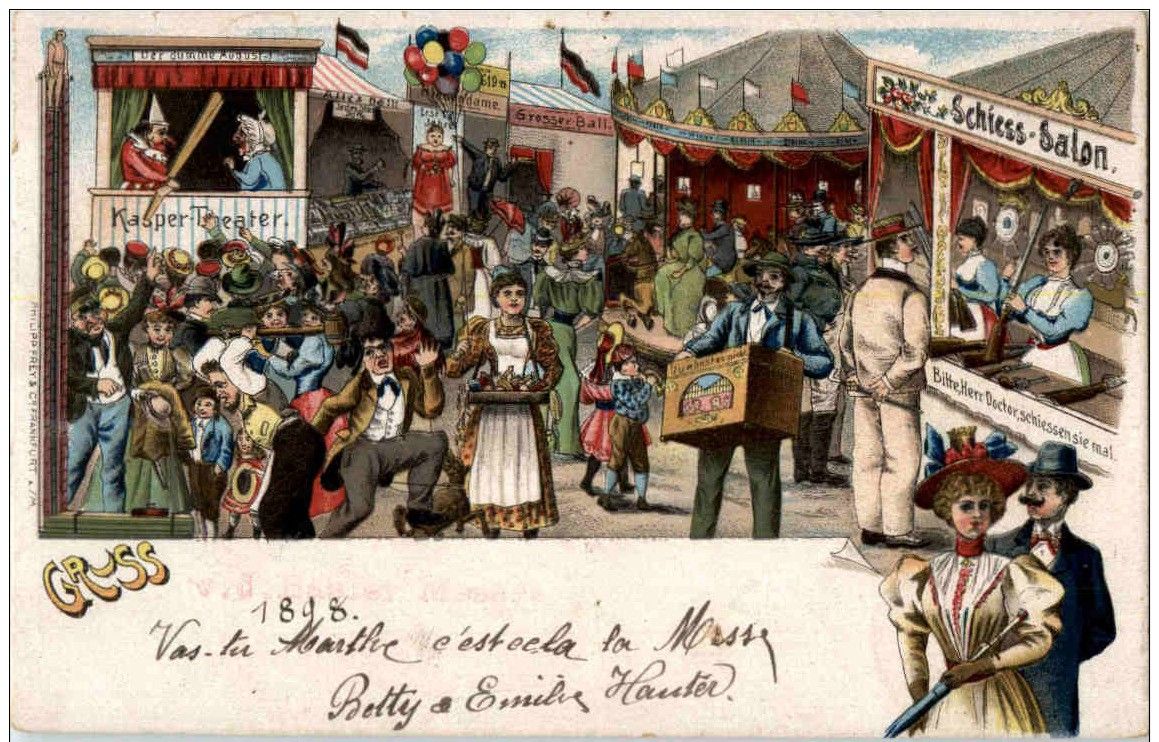 Der dumme August.
Kasper-Theater.
Grosser Ball.
Schiess-Salon.
Bitte, Herr Doctor, schiessen sie mal.
PHILIPP FREY & Cº FRANKFURT A/M
GRUSS
1898.
Vas-tu Marthe c'est cela la Messe
Betty & Emilie Hauter.